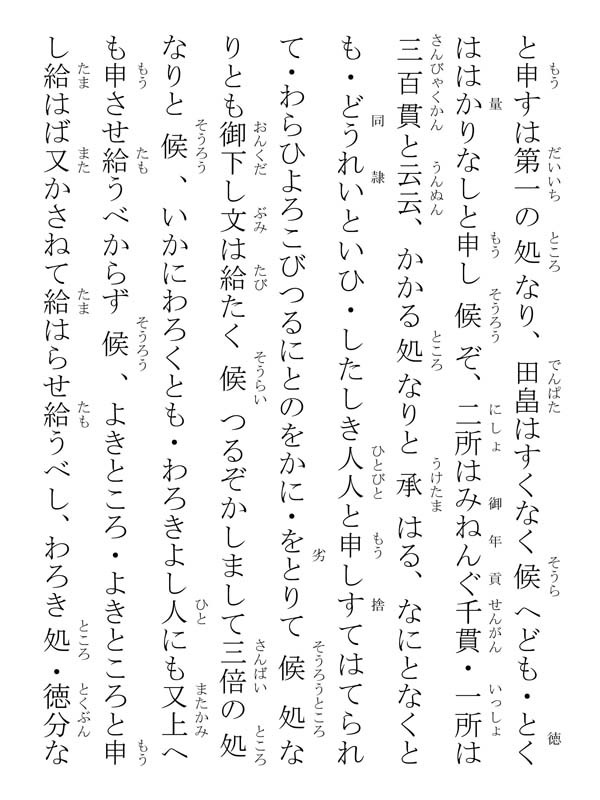 と申すは第一の処なり、田畠はすくなく候へども・とく
ははかりなしと申し候ぞ、二所はみねんぐ千貫・一所は
三百貫と云云、かかる処なりと承はる、なにとなくと
も・どうれいといひ・したしき人人と申しすてはてられ
て・わらひよろこびつるにとのをかに・をとりて候処な
りとも御下し文は給たく候つるぞかしまして三倍の処
なりと候、いかにわろくとも・わろきよし人にも又上へ
も申させ給うべからず候、よきところ・よきところと申
し給はば又かさねて給はらせ給うべし、わろき処・徳分な